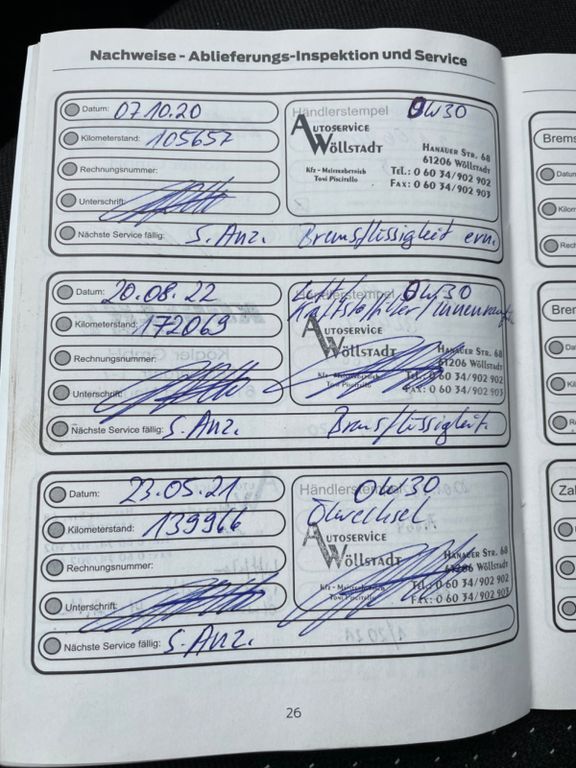 Nachweise - Ablieferungs-Inspektion und Service
Datum: 07.10.20
Kilometerstand: 105657
Rechnungsnummer:
Unterschrift:
Händlerstempel 0W30
AUTOSERVICE
WÖLLSTADT
HANAUER STR. 68
61206 WÖLLSTADT
Kfz - Meisterbereich
Tovi Piscitello
TEL.: 0 60 34/902 902
FAX: 0 60 34/902 903
Nächste Service fällig: S. Anz. Bremsflüssigkeit ern.
Datum: 20.08.22
Kilometerstand: 172069
Rechnungsnummer:
Unterschrift:
Händlerstempel 0W30
Luft/
Kraftstofffilter/Innenraum
AUTOSERVICE
WÖLLSTADT
HANAUER STR. 68
61206 WÖLLSTADT
Kfz - Meisterbereich
Tovi Piscitello
TEL.: 0 60 34/902 902
FAX: 0 60 34/902 903
Nächste Service fällig: S. Anz. Bremsflüssigkeit.
Datum: 23.05.21
Kilometerstand: 139966
Rechnungsnummer:
Unterschrift:
Händlerstempel 0W30
Ölwechsel
AUTOSERVICE
WÖLLSTADT
HANAUER STR. 68
61206 WÖLLSTADT
Kfz - Meisterbereich
Tovi Piscitello
TEL.: 0 60 34/902 902
FAX: 0 60 34/902 903
Nächste Service fällig: S. Anz.
26
Brems
Datum
Kilom
Rech
Brem
Da
Kil
R
Za